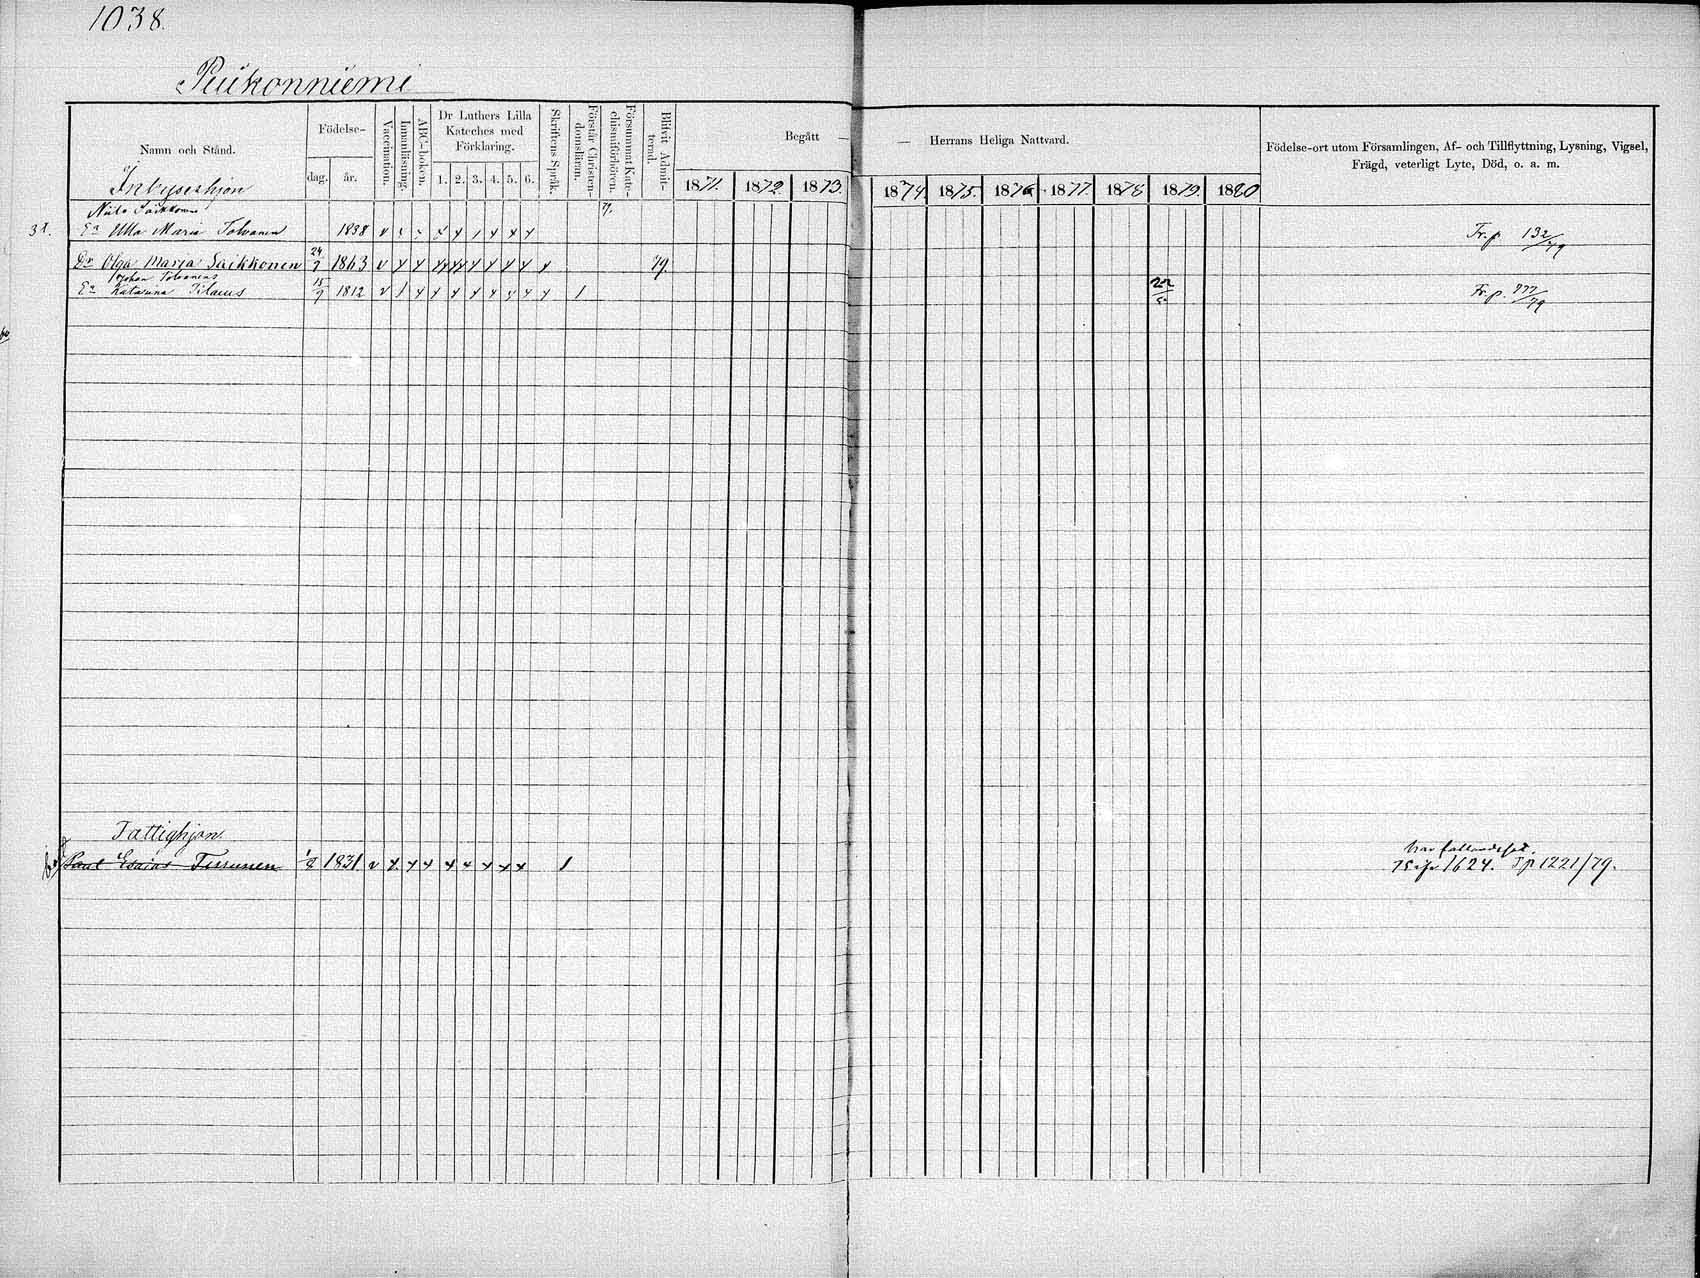 1038.
Piükonniemi
Namn och Stånd.
Födelse-
dag.
år.
Vaccination.
Innanläsning.
ABC-boken.
Dr Luthers Lilla
Kateches med
Förklaring.
1. 2. 3. 4. 5. 6.
Skriftens Språk.
Förstår Christen-
domsläran.
Försummat Kate-
chismiförhören.
Blifvit Admit-
ternd.
Begått —
1871. 1872. 1873.
— Herrans Heliga Nattvard.
1874 1875. 1876 1877 1878 1879. 1880
Födelse-ort utom Församlingen, Af- och Tillflyttning, Lysning, Vigsel,
Frägd, veterligt Lyte, Död, o. a. m.
Inhyseshjon
Nils Saikkonen
Ea Ulla Maria Tolvanen 1838 Fr. p 132/79
Dr Olga Maria Saikkonen 24/7 1863 79.
Johan Tolvanens
Ea Katarina Pilanus 15/9 1812 1 22/5 Fr. p. 777/79
Fattighjon
Paul Esaias Turunen 1/2 1831. 1 1624. T p 1221/79.